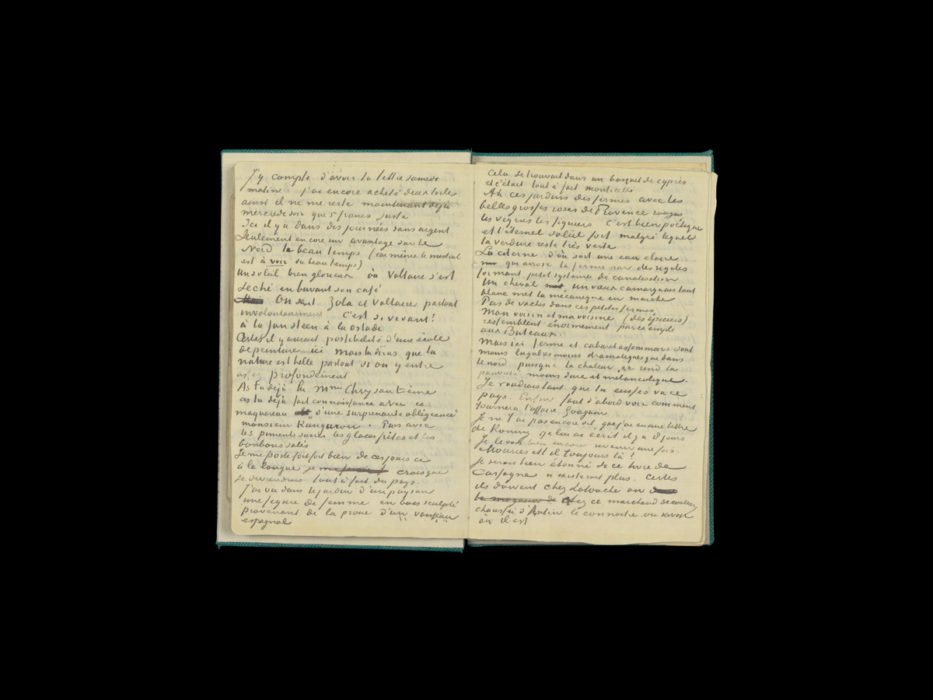 J'y compte d'avoir ta lettre samedi
matin. j'ai encore acheté deux toiles
ainsi il ne me reste maintenant déjà
mercredi soir que 5 francs juste
Ici il y a dans des journées sans argent
Seulement encore un avantage sur le
Nord le beau temps (car même le mistral
est à voir du beau temps)
un soleil bien glorieux où Voltaire s'est
séché en buvant son café
On sent Zola et Voltaire partout
involontairement c'est si vivant!
à la Jan Steen à la Ostade
Certes il y aurait possibilité d'une école
de peinture ici mais tu diras que la
nature est belle partout si on y entre
assez profondement
As tu déjà lu Mme Chrysantème
as tu déjà fait connaissance avec ce
maquereau d'une surprenante obligeance
monsieur Kangourou. Puis avec
les piments sucrés les glaces frites et les
bonbons salés
Je me porte fort fort bien de ces jours ci
à la longue je crois que
je deviendrai tout à fait du pays
J'ai vu dans le jardin d'un paysan
une figure de femme en bois sculpté
provenant de la proue d'un vaisseau
espagnol
Cela se trouvait dans un bosquet de cyprès
et c'était tout à fait monticelli
Ah ces jardins des fermes avec les
belles grosses roses de Provence rouges
les vignes les figuiers c'est bien poétique
et l'éternel soleil fort malgré lequel
la verdure reste très verte
La citerne d'où sort une eau claire
qui arrose la ferme par des rigoles
formant petit système de canalisation
Un cheval un vieux camarguais tout
blanc met la mécanique en marche
Pas de vaches dans ces petites fermes
Mon voisin et ma voisine (des épiciers)
ressemblent énormement par exemple
aux Buteaux
Mais ici ferme et cabaret assommoir sont
moins lugubres moins dramatiques que dans
le nord puisque la chaleur &c rend la
pauvreté moins dure et melancolique.
Je voudrais tant que tu eusses vu ce
pays. Enfin faut d'abord voir comment
tournera l'affaire Gauguin
Je ne t'ai pas encore dit que j'ai eu une lettre
de Koning je lui ai écrit il y a 8 jours
je le vois bien encore revenir une fois
Mouries est il toujours là!
Je serais bien étonné si ce livre de
Cassagne n'existerait plus. Certes
ils doivent chez Latouche ou
chez ce marchand de couleurs
chaussée d'Antin le connaitre ou savoir
où il est